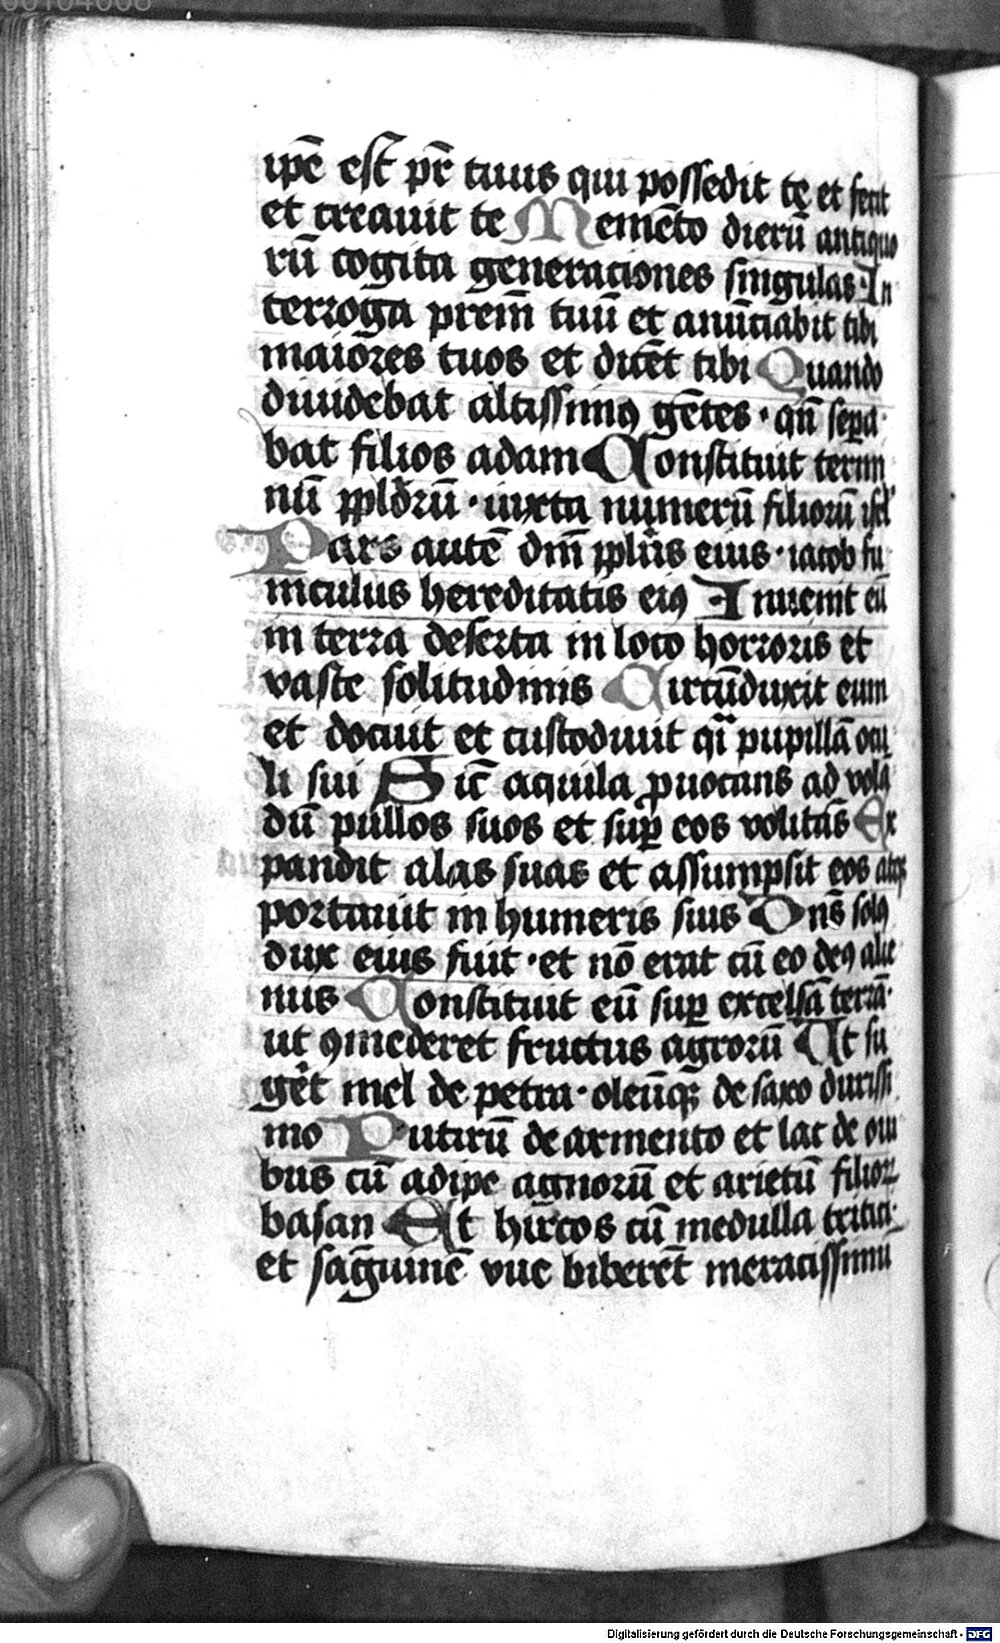 00104008
ipē est̄ pr̄ tuus qui possedit te et fecit
et creauit te Memēto dierū antiquo
rū cogita generaciones singulas In
terroga prem̄ tuū et anūciabit tibi
maiores tuos et dicēt tibi Quando
diuidebat altissimꝯ gētes · qn̄ sepa
bat filios adam Constituit termi
nū ppl̄orū · iuxta numerū filiorū isrl̄
Pars autē dn̄i ppl̄us eius · iacob fu
niculus hereditatis eiꝯ Inuenit eū
in terra deserta in loco horroris et
vaste solitudinis Circūduxit eum
et docuit et custodiuit qi pupillā ocu
li sui Sic̄ aquila ꝓuocans ad volā
dū pullos suos et suꝑ eos volitās Ex
pandit alas suas et assumpsit eos atqꝫ
portauit in humeris suis Dn̄s solꝯ
dux eius fuit · et nō erat cū eo deꝯ alie
nus Constituit eū suꝑ excelsā terrā ·
ut ꝯmederet fructus agrorū Ut su
gēt mel de petra · oleūqꝫ de saxo durissi
mo Butirū de armento et lac de oui
bus cū adipe agnorū et arietū filioꝝ
basan Et hircos cū medulla tritici ·
et sāguinē vue biberēt meracissimū
Digitalisierung gefördert durch die Deutsche Forschungsgemeinschaft - DFG